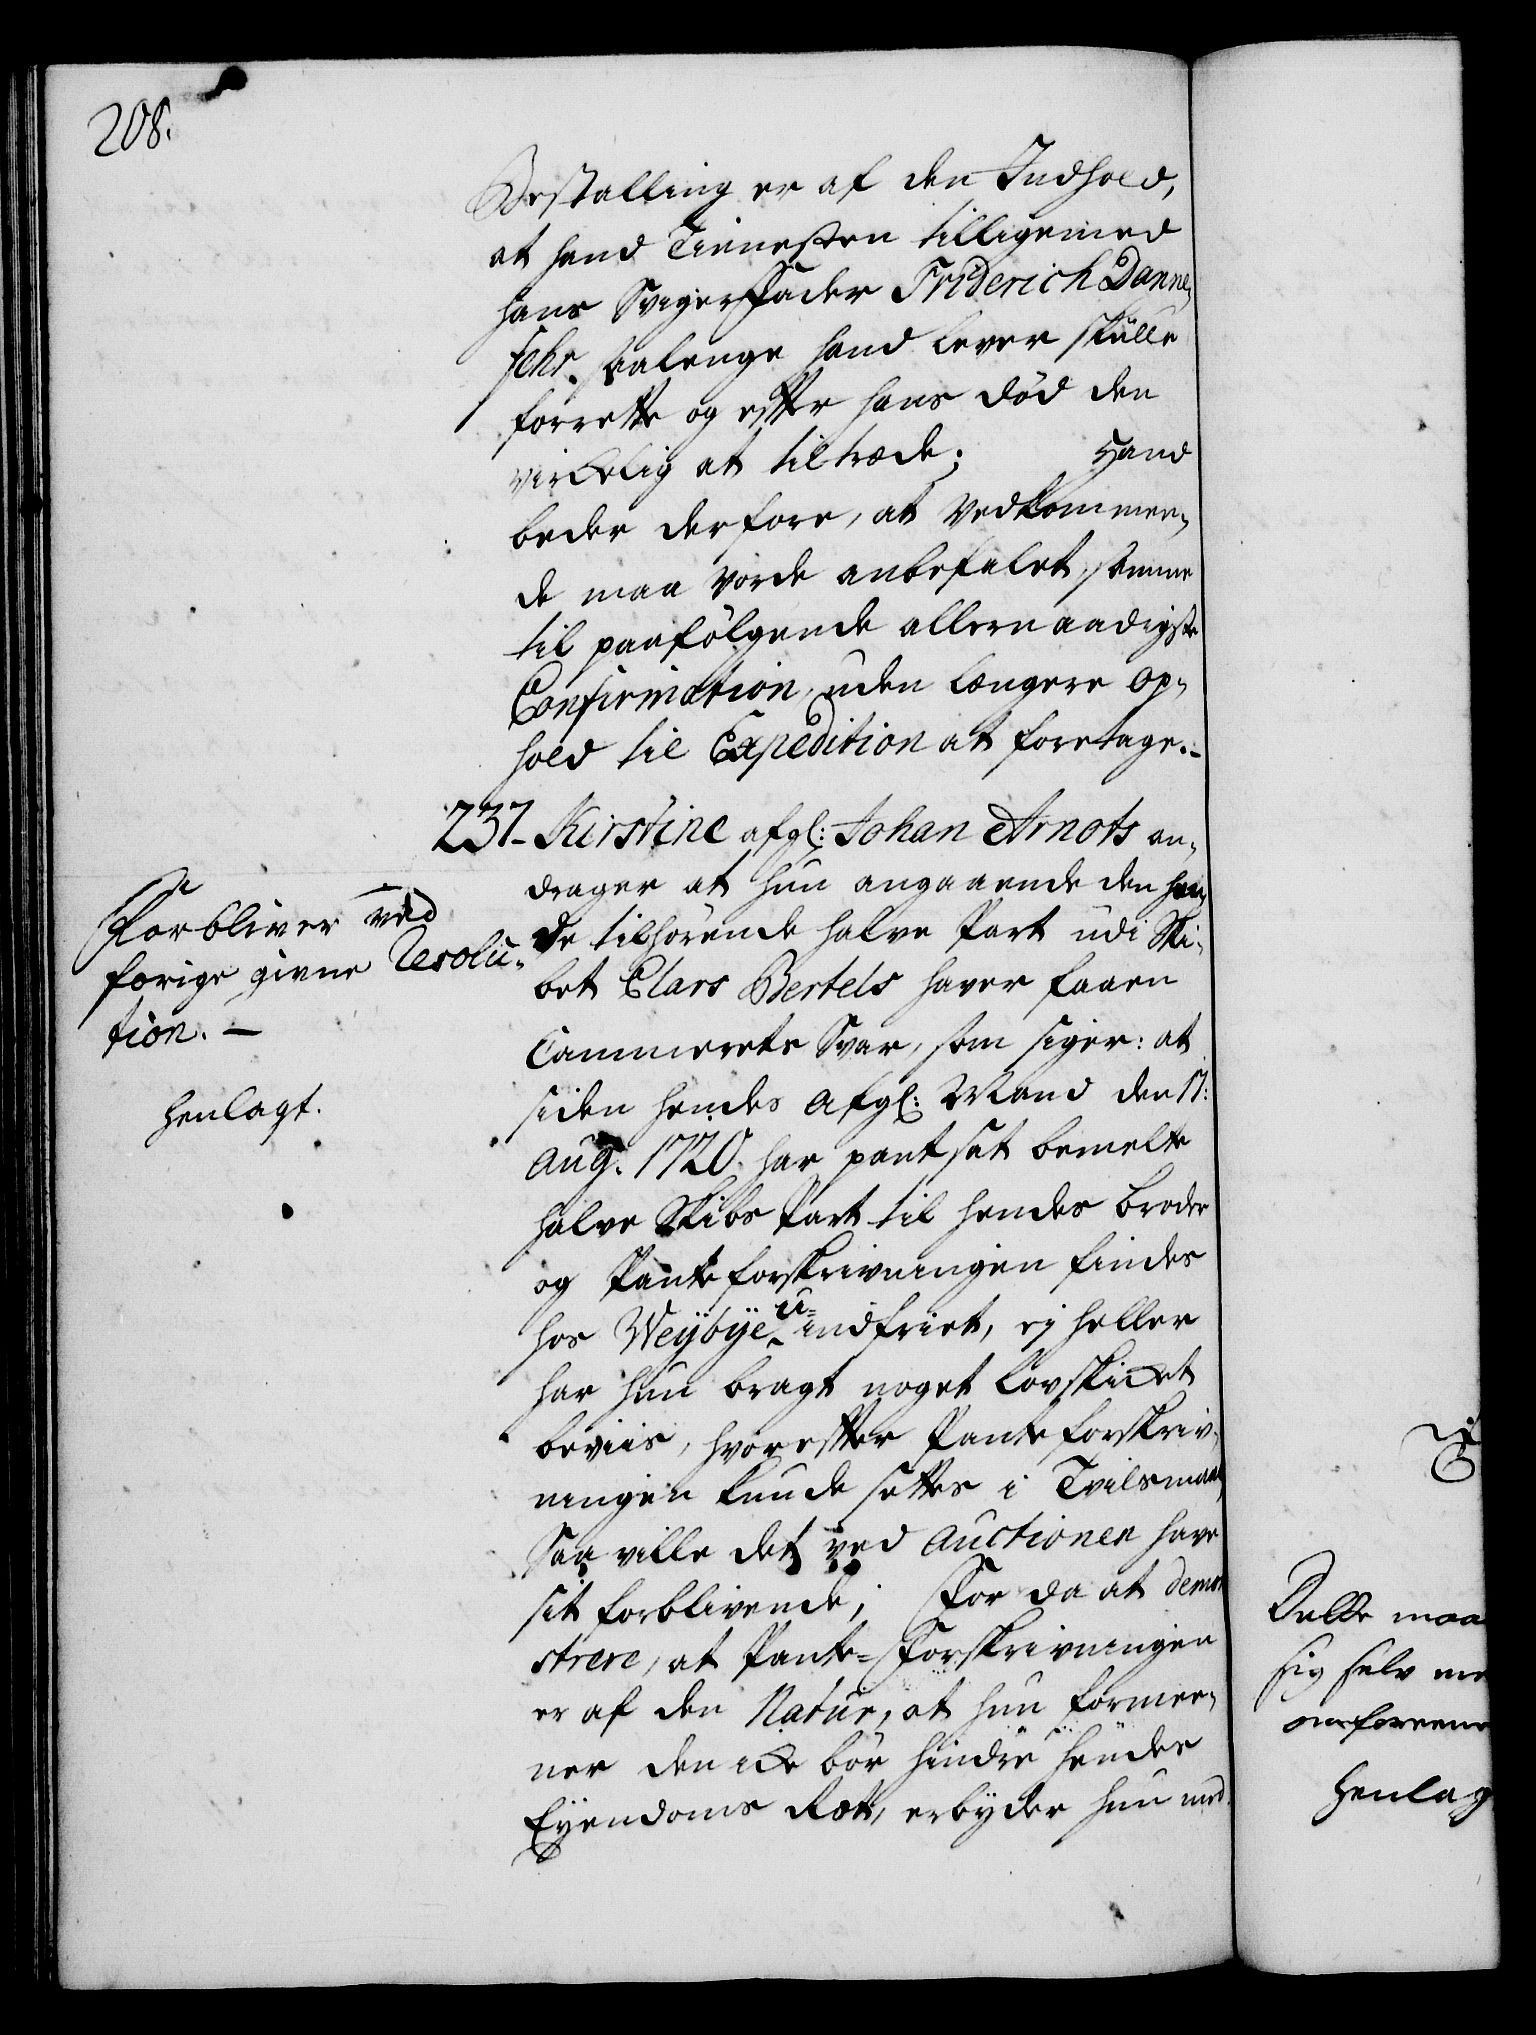 208.
Bestalling er af den Indhold,
at hand Tienesten tilligemed
hans Svigerfader Friderich Danne,
fehr. saalenge hand lever skulle
forrette og efter hans död den
virkelig at tiltræde; Hand
beder derfore, at Vedkommen,
de maa vorde anbefalet, samme
til paafölgende allernaadigste
Confirmation, uden længere op,
hold til Expedition at foretage.-
237- Kirstine afgl: Johan Arnots an,
drager at hun angaaende den hen,
de tilhörende halve Part udi Ski,
bet Clars Bertels haver faaen
Cammerets Svar, som siger: at
siden hendes afgl: Mand den 17:
Aug. 1720. har pantsat bemelte
halve Skibs Part til hendes broder
og Panteforskrivningen findes
hos Weÿbÿe u- indfriet, ej heller
har hun bragt noget lovskicket
beviis, hvorefter Panteforskriv,
ningen kunde settes i Tvilsmaal,
Saa ville det ved Auctionen have
sit forblivende; For da at demon
strere, at Pante-Forskrivningen
er af den Natur, at hun formee,
ner den icke bör hindre hendes
Eÿendoms Ræt, erbÿder hun med
Forbliver ved
forige givne Resolu-
tion. -
henlagt.
Dette maa
sig selv me
henlag